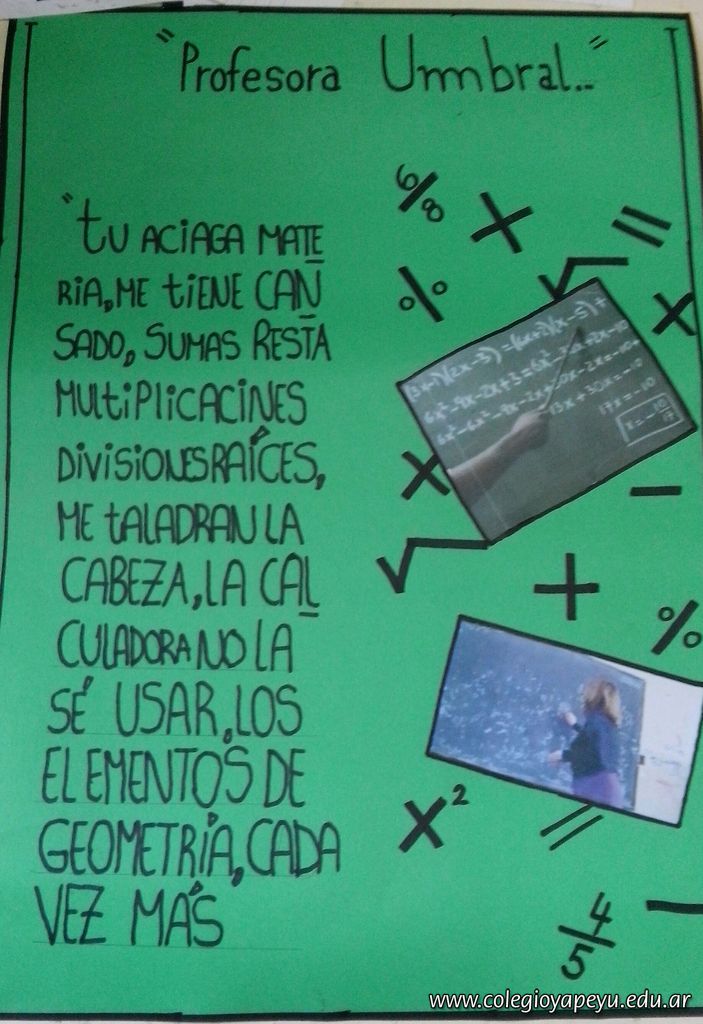 "Profesora Ummbral..."
"tu ACIAGA MATE
RIA, ME tiENE CAN
SADO, SUMAS RESTA
MULtiPLICACINES
DIVISIONES RAÍCES,
ME tALADRAN LA
CABEZA, LA CAL
CULADORA NO LA
SÉ USAR, LOS
ELEMENTOS DE
GEOMETRÍA, CADA
VEZ MÁS
6/8
+
=
%
√
x
x
−
√
+
%
x²
=
4/5
−
17x = -10
x = -10/17
www.colegioyapeyu.edu.ar